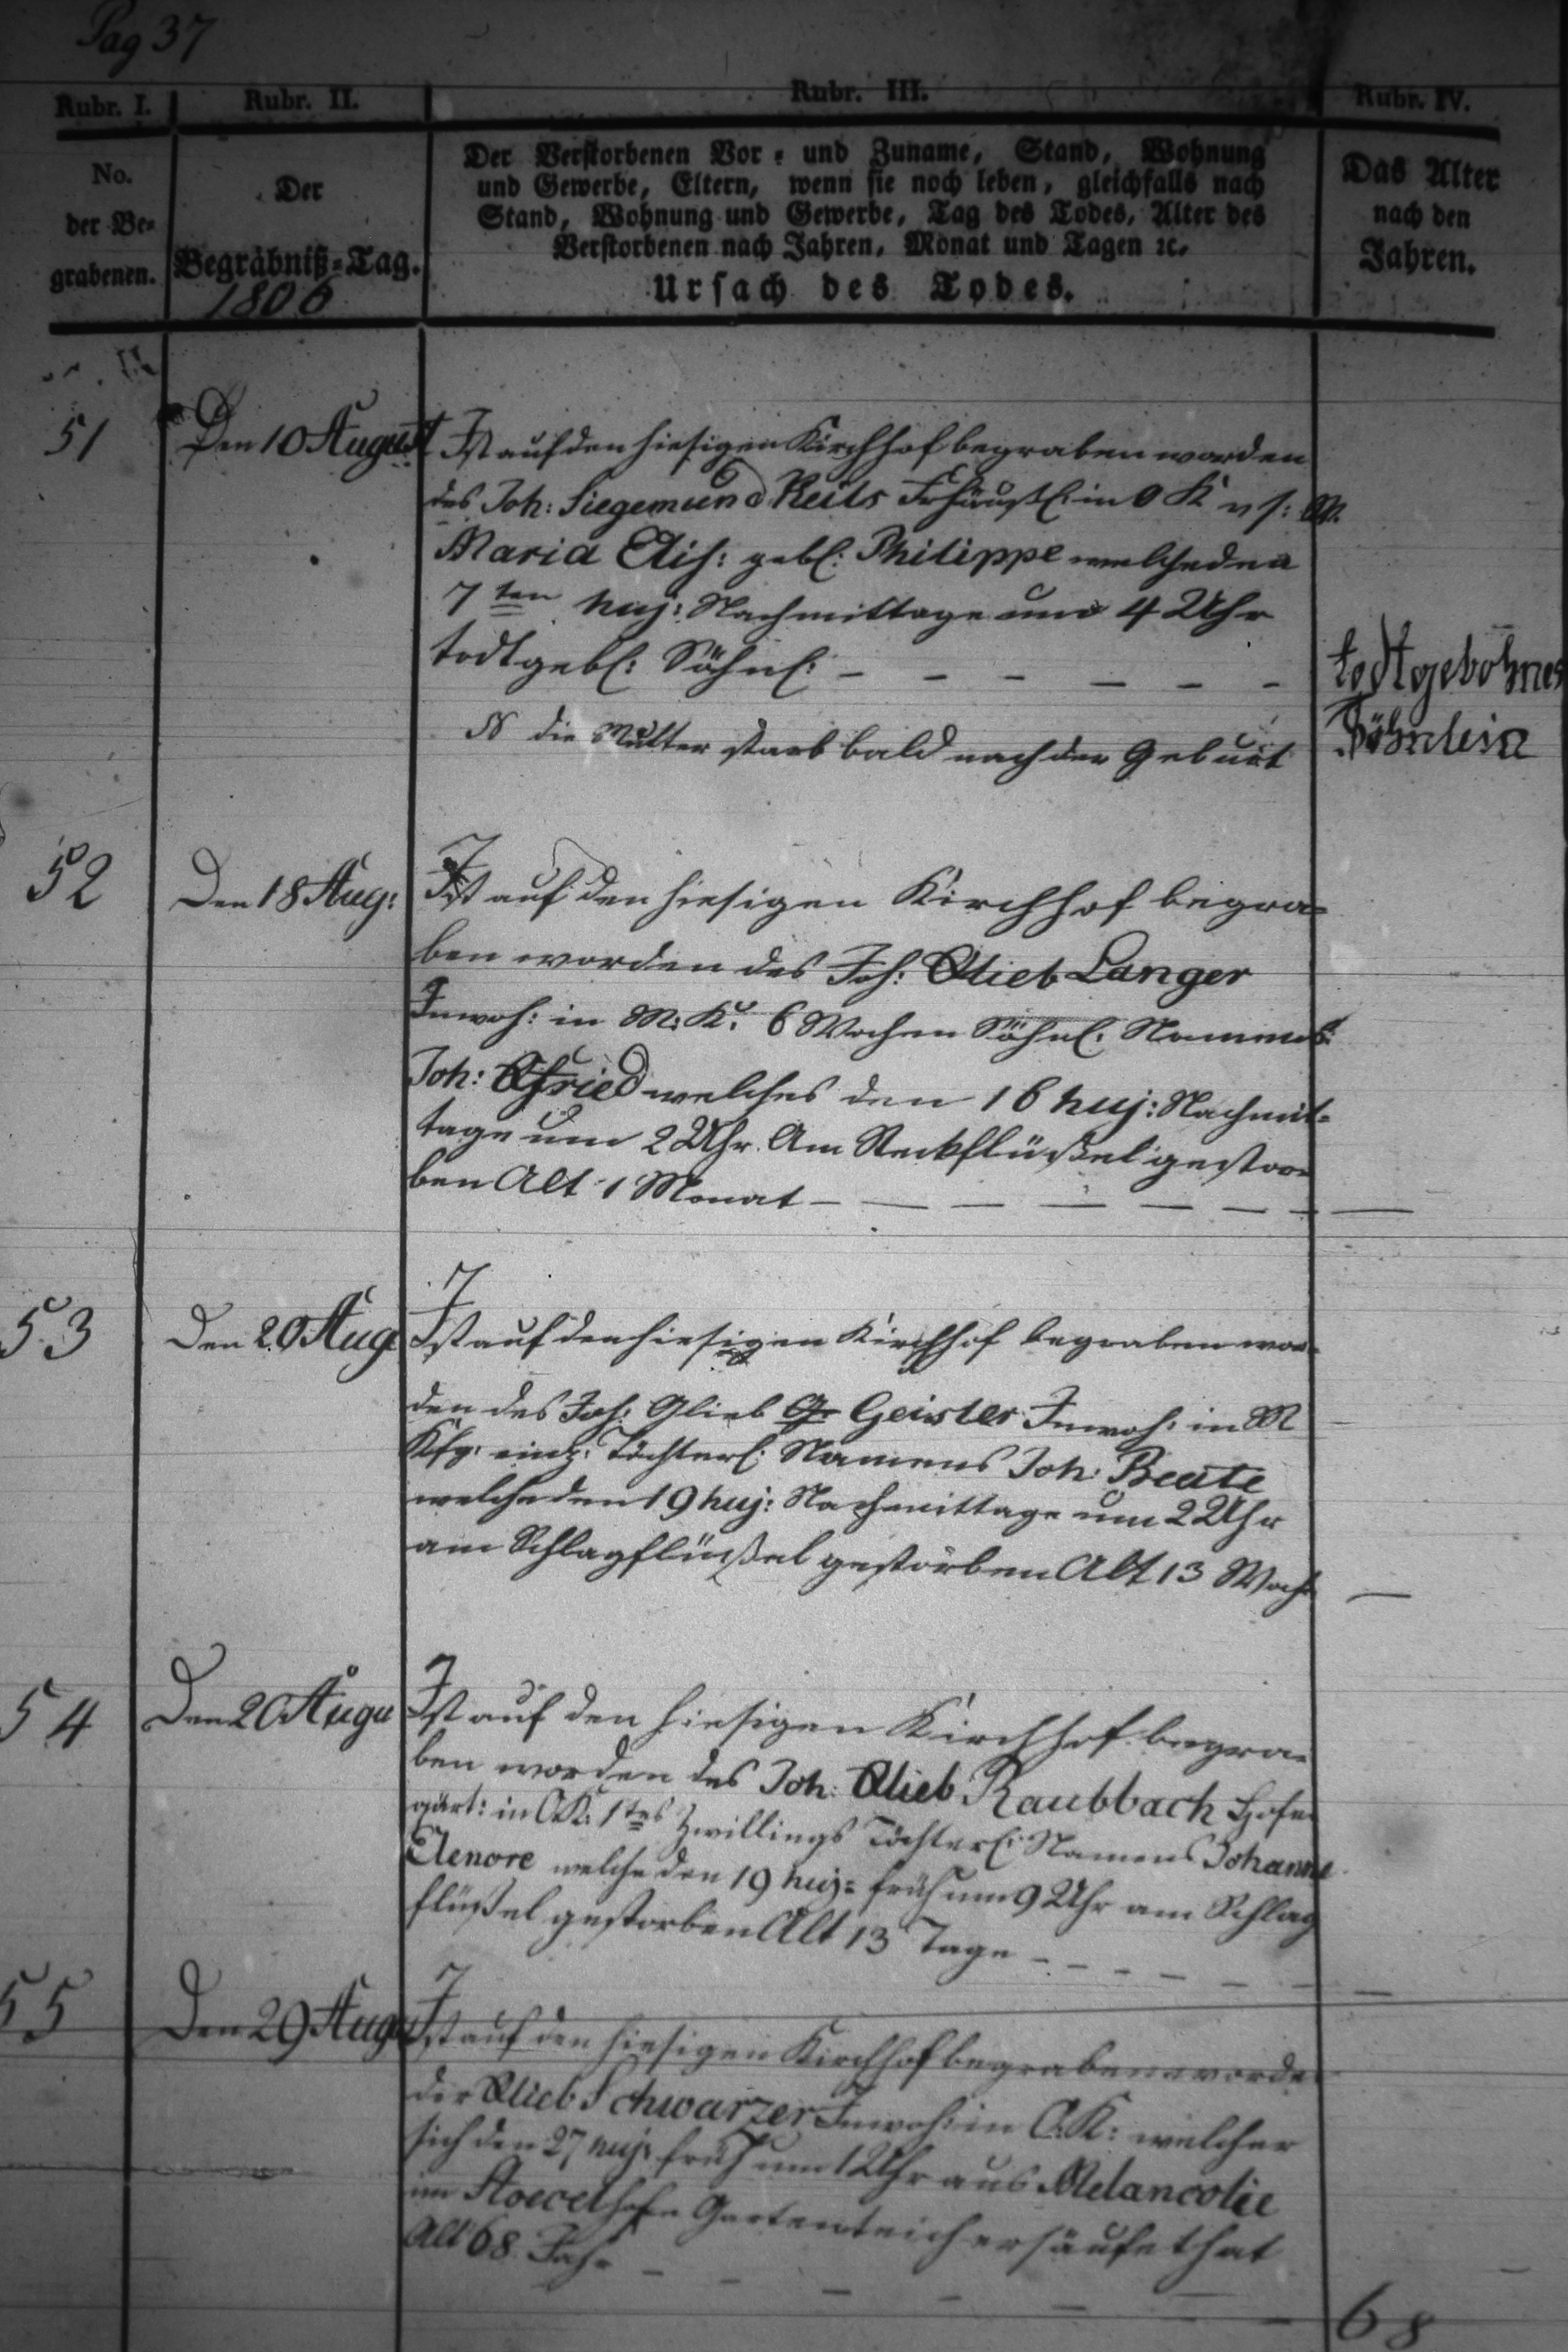 Pag 37
Rubr. I.
Rubr. II.
Rubr. III.
Rubr. IV.
No.
der Be-
grabenen.
Der
Begräbniß-Tag.
1806
Der Verstorbenen Vor- und Zuname, Stand, Wohnung
und Gewerbe, Eltern, wenn sie noch leben, gleichfalls nach
Stand, Wohnung und Gewerbe, Tag des Todes, Alter des
Verstorbenen nach Jahren, Monat und Tagen ꝛc.
Ursach des Todes.
Das Alter
nach den
Jahren.
51
Den 10 August
Ist auf den hiesigen Kirchhof begraben worden
des Joh: Siegemund Keils Frhäußl: in O K
Maria Elis: gebl: Philippe welche den
7ten huj: Nachmittage um 4 Uhr
todtgebl: Söhnl: – – – – – –
die Mutter starb bald nach der Geburt
todtgebohnes
Söhnlein
52
Den 18 Aug:
Ist auf den hiesigen Kirchhof begra-
ben worden des Joh: Glieb Langer
Inwoh: in M: K: 6 Wochen Söhnl: Namens
Joh: Gfried welches den 16 huj: Nachmit-
tage um 2 Uhr. Am Steckflüßel gestor-
ben Alt 1 Monat – – – – – – –
53
Den 20 Aug
Ist auf den hiesigen Kirchhof begraben wor-
den des Joh: Glieb Geisler Inwoh: in M
Kfg: einz: Töchterl: Namens Joh: Beate
welche den 19 huj: Nachmittage um 2 Uhr
am Schlagflüßel gestorben Alt 13 Woch
54
Den 20 Augu
Ist auf den hiesigen Kirchhof begra-
ben worden des Joh: Glieb Raubbach Hofe
gärt: in O.K: 1tes Zwillings Töchterl: Namens Johanne
Elenore welche den 19 huj: früh um 9 Uhr am Schlag
flüßel gestorben Alt 13 Tage – – – – – –
55
Den 29 Augu
Ist auf den hiesigen Kirchhof begraben worde
der Glieb Schwarzer Inwoh: in O.K: welcher
sich den 27 huj: früh um 1 Uhr aus Melancolie
im Gartenteich ersäuft hat
Alt 68 Jahr – – – – – –
68